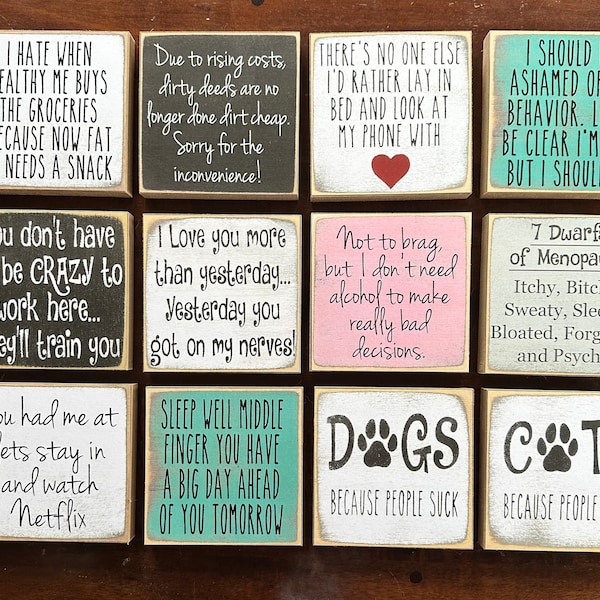 I HATE WHEN
EALTHY ME BUYS
THE GROCERIES
ECAUSE NOW FAT
NEEDS A SNACK
Due to rising costs,
dirty deeds are no
longer done dirt cheap.
Sorry for the
inconvenience!
THERE'S NO ONE ELSE
I'D RATHER LAY IN
BED AND LOOK AT
MY PHONE WITH
I SHOULD
ASHAMED OF
BEHAVIOR. L
BE CLEAR I'M
BUT I SHOUL
ou don't have
be CRAZY to
work here...
ey'll train you
I Love you more
than yesterday...
Yesterday you
got on my nerves!
Not to brag,
but I don't need
alcohol to make
really bad
decisions.
7 Dwarf
of Menopau
Itchy, Bitch
Sweaty, Slee
Bloated, Forg
and Psych
ou had me at
lets stay in
and watch
Netflix
SLEEP WELL MIDDLE
FINGER YOU HAVE
A BIG DAY AHEAD
OF YOU TOMORROW
DOGS
BECAUSE PEOPLE SUCK
CAT
BECAUSE PEOPLE